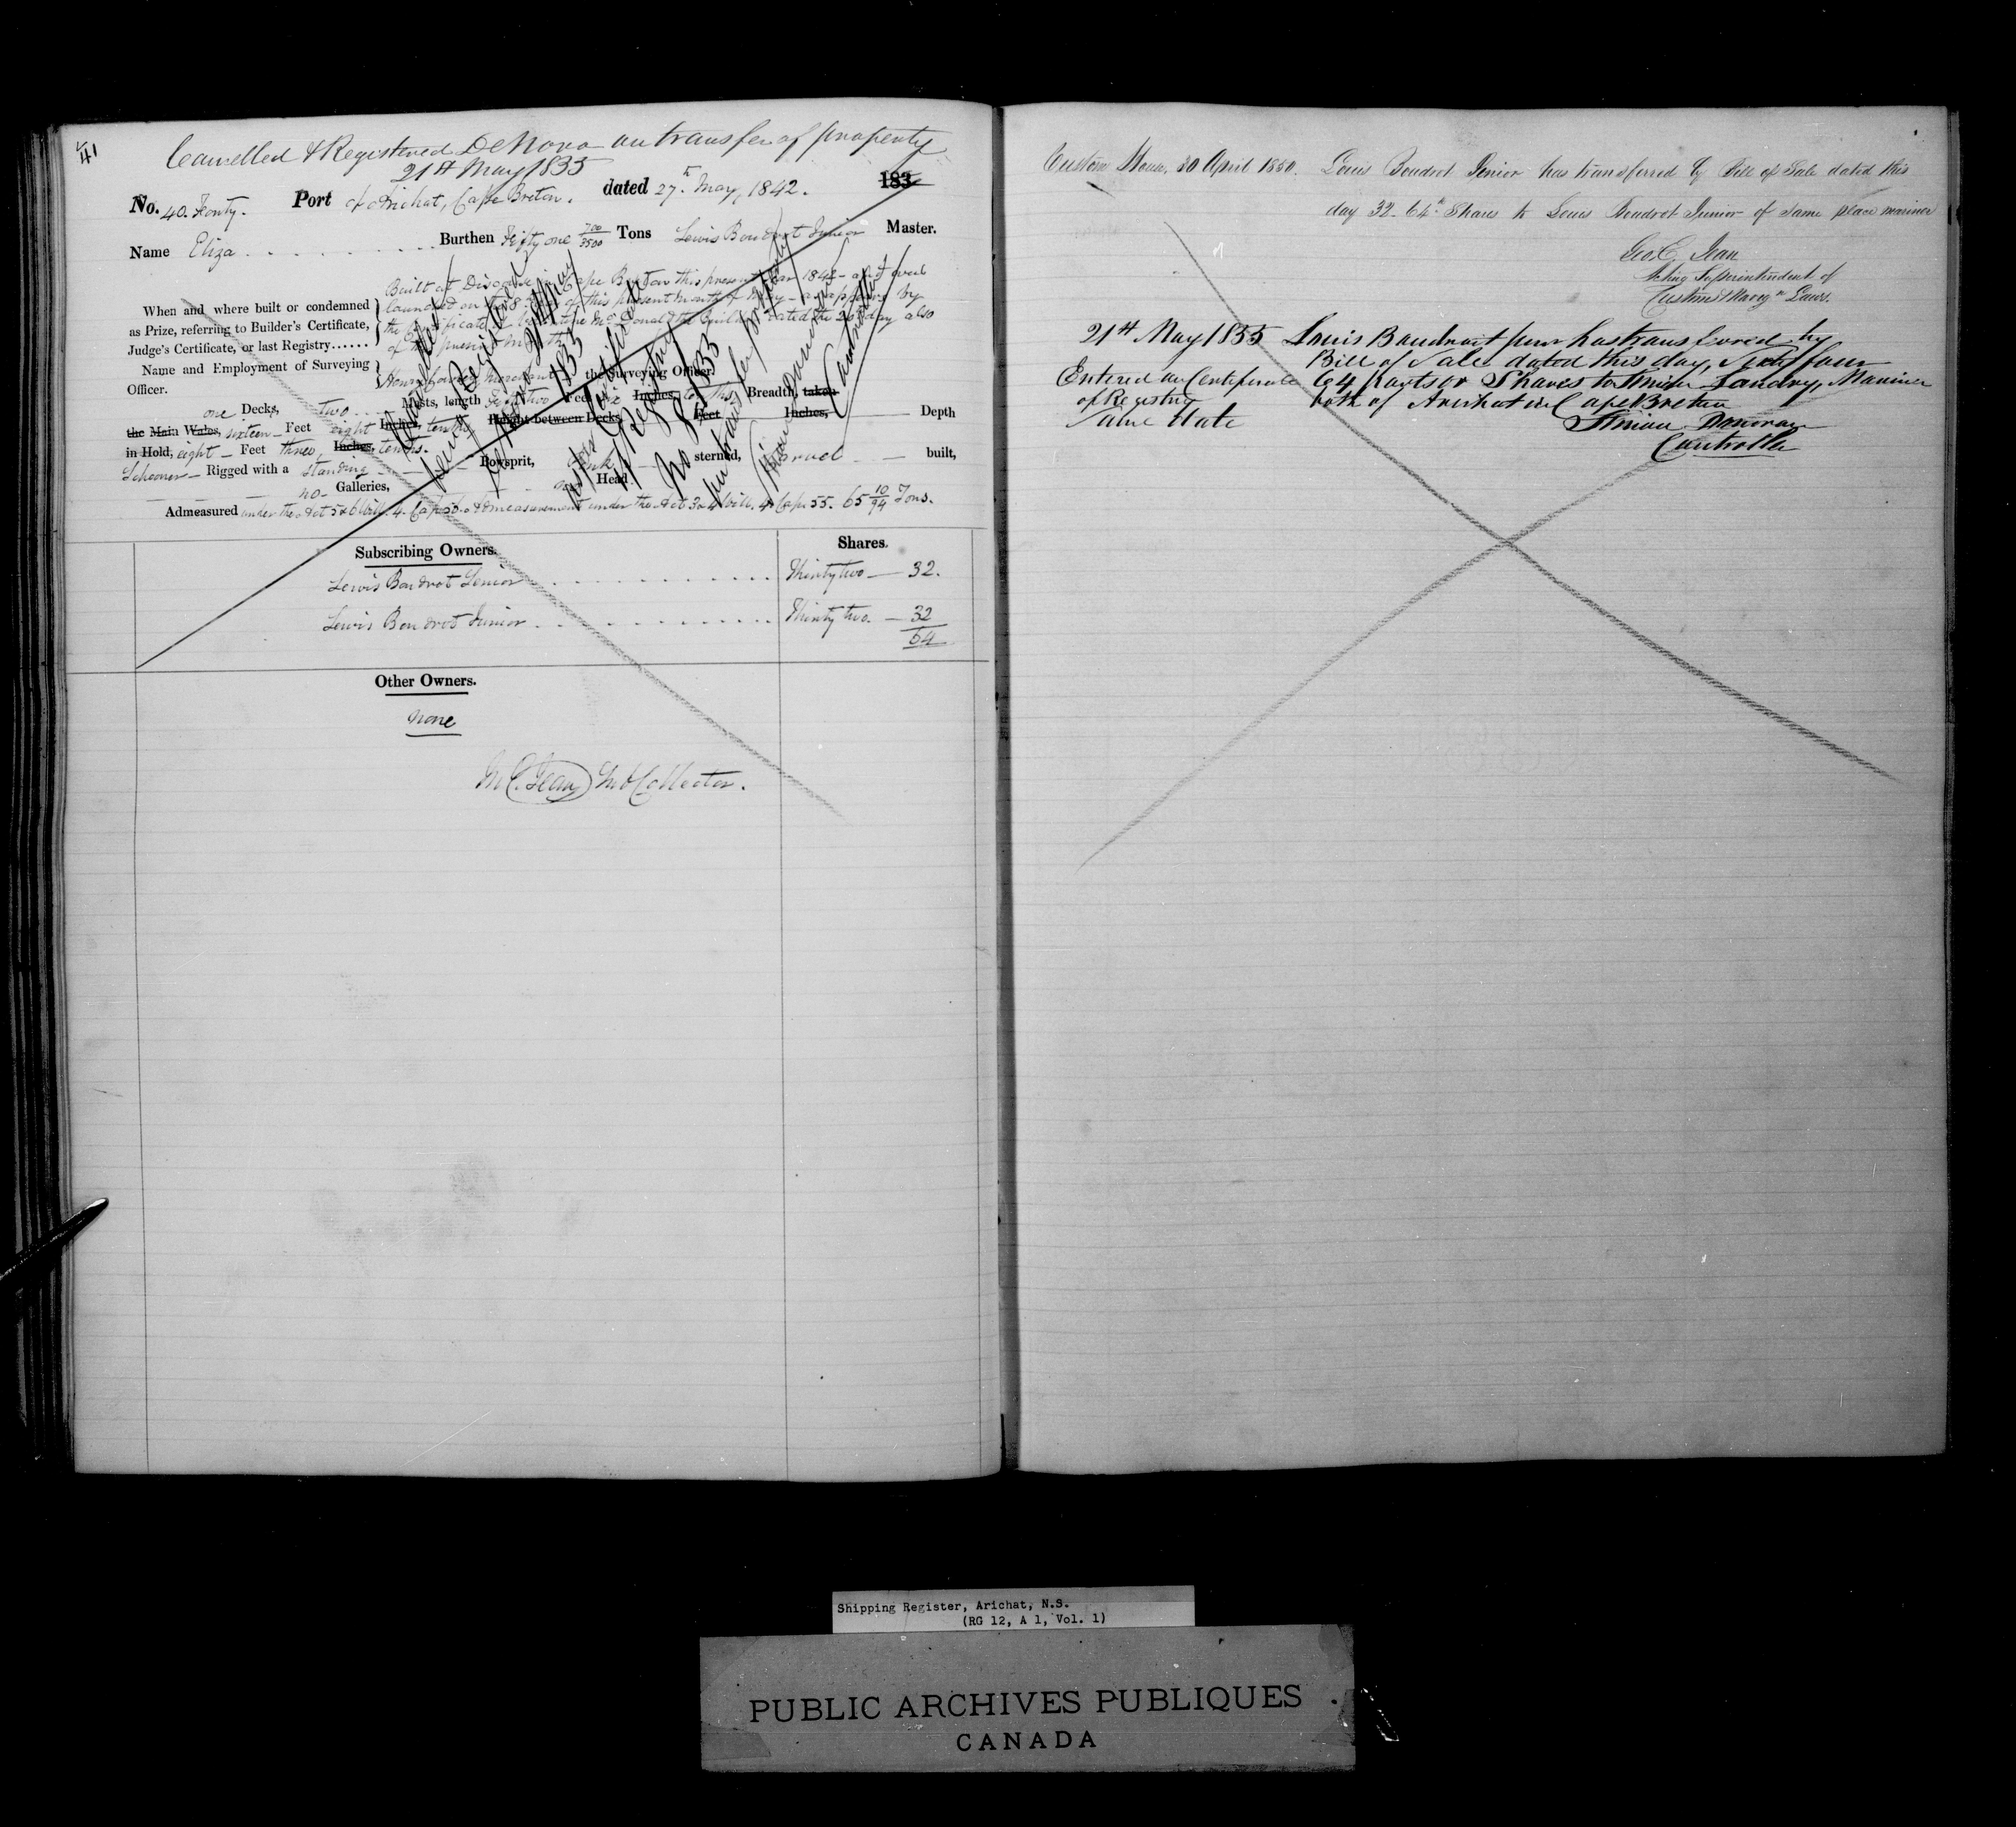 41
Cancelled & Registered De Novo on transfer of property
21st May 1855
No. 40. Forty. Port of Arichat, Cape Breton. dated 27th May, 1842. 183
Name Eliza Burthen Fifty one 700/3500 Tons Lewis Boudrot Junior Master.
When and where built or condemned
as Prize, referring to Builder's Certificate,
Judge's Certificate, or last Registry......
Built at Discousse in Cape Breton this present year 1842 - and
launched on the of this present month of May - as appears by
the Certificate of the Builder dated the 26th day also
of the present month
Name and Employment of Surveying
Officer.
Henry merchant the Surveying Officer.
one Decks, two Masts, length Fifty two Feet Inches, tenths, Breadth, taken
the Main Wales, sixteen - Feet eight Inches, tenths, Height between Decks, Feet Inches, Depth
in Hold, eight - Feet three, Inches, tenths.
Schooner - Rigged with a standing Bowsprit, sterned, Carvel built,
no - Galleries, Head.
Admeasured under the Act 5&6 Will. 4. Cap 56. Admeasurement under the Act 3&4 Will. 4. Cap. 55. 65 10/94 Tons.
Cancelled
Certificate
Registry
No 8/1855
on transfer property
Controller
Subscribing Owners. Shares.
Lewis Boudrot Senior Thirty two — 32.
Lewis Boudrot Junior Thirty two. — 32
64
Other Owners.
none
C. Jean Sub Collector.
Custom House, 30 April 1850. Louis Boudrot Senior has transferred by Bill of Sale dated this
day 32. 64th Shares to Louis Boudrot Junior of same place mariner
Geo. C. Jean
Acting Superintendent of
Customs & Navign Laws.
21st May 1855 Louis Boudroit junr has transferred by
Bill of Sale dated this day, Sixty four
Entered on Certificate 64 parts or Shares to Landry, Mariner
of Registry both of Arichat in Cape Breton
Same date
Simon Donovan
Controller
Shipping Register, Arichat, N.S.
(RG 12, A 1, Vol. 1)
PUBLIC ARCHIVES PUBLIQUES
CANADA